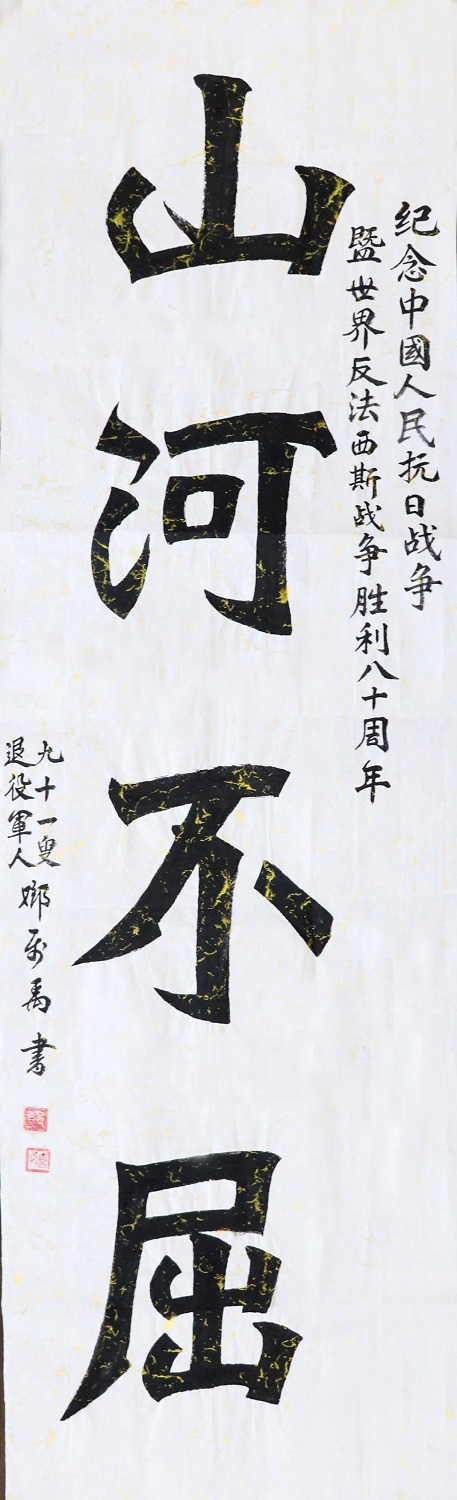 纪念中國人民抗日战争
暨世界反法西斯战争胜利八十周年
山河不屈
九十一叟
退役軍人
禹书